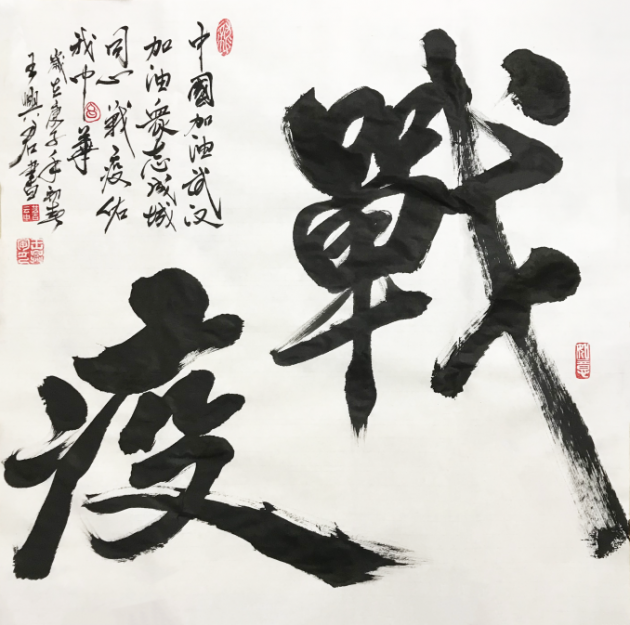 戰
疫
中國加油武汉
加油衆志成城
同心戰疫佑
我中華
歲在庚子年初春
王興君書
如意